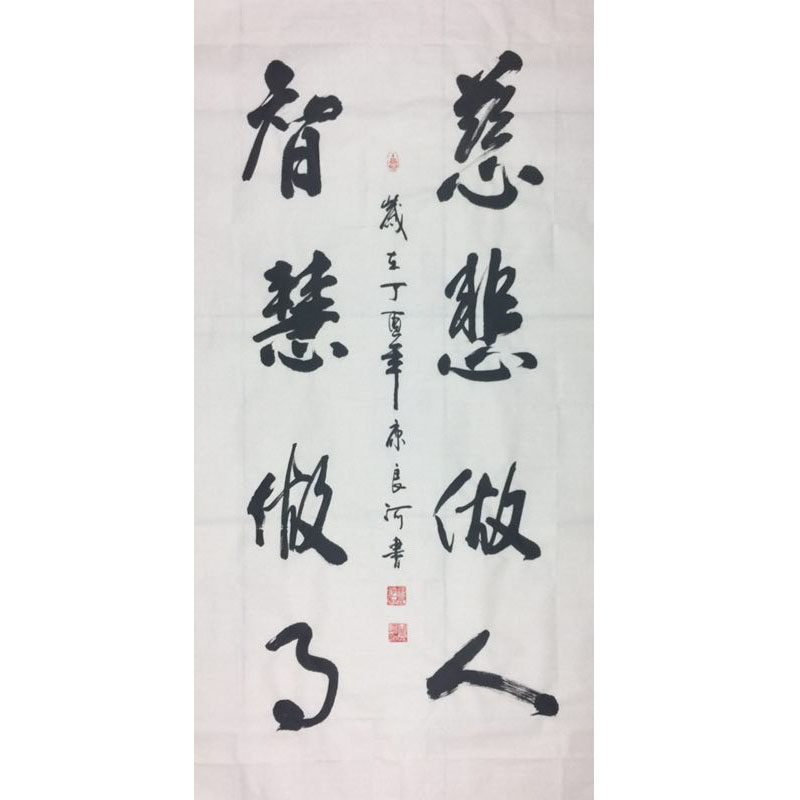 慈悲做人
智慧做事
歲在丁酉年康良河書